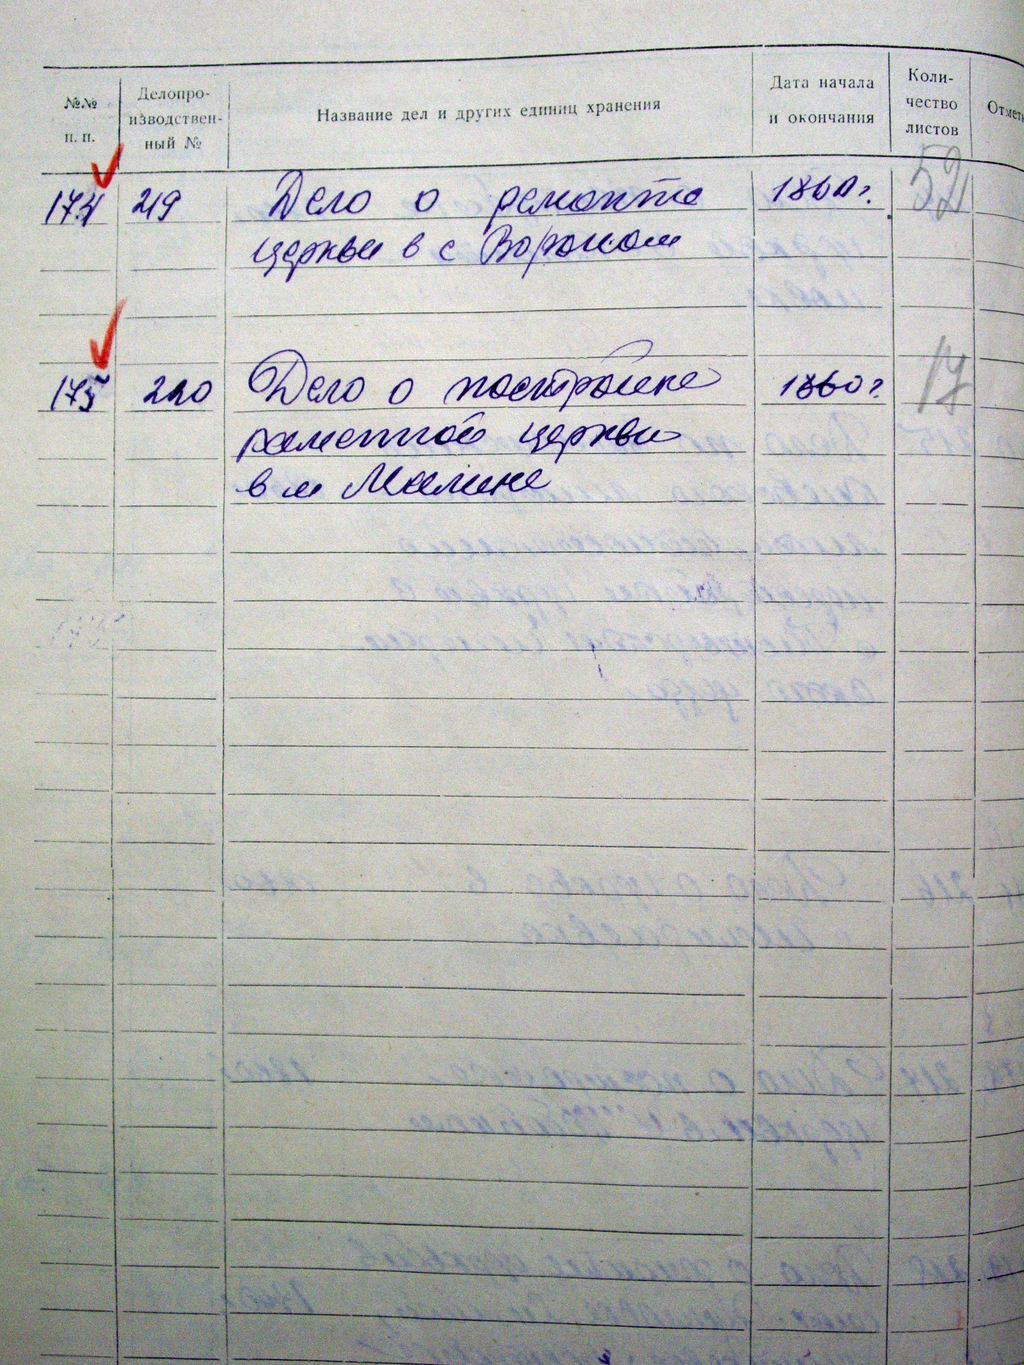 №№ п. п.
Делопро-
изводствен-
ный №
Название дел и других единиц хранения
Дата начала
и окончания
Коли-
чество
листов
Отмет
174 219 Дело о ремонте 1860 г. 52
церкви в с Вороном
175 220 Дело о постройке 1860 г. 17
каменной церкви
в м Малине